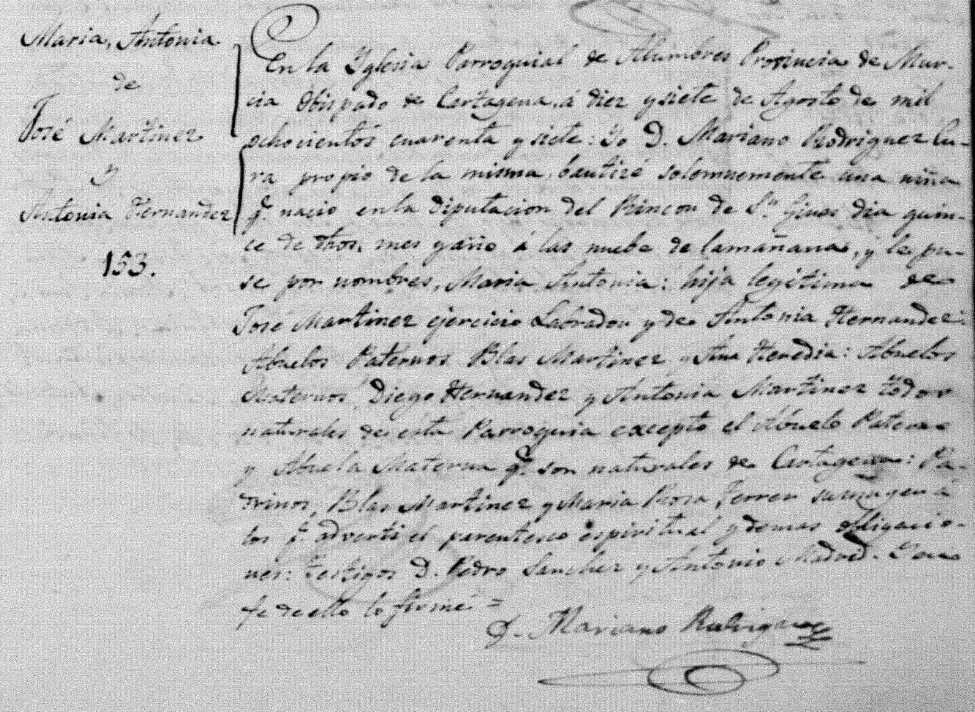 Maria, Antonia
de
José Martinez
y
Antonia Hernandez
153.
En la Yglesia Parroquial de Alumbres Provincia de Mur-
cia Obispado de Cartagena, á diez y siete de Agosto de mil
ochocientos cuarenta y siete: Yo D. Mariano Rodriguez Cu-
ra propio de la misma, bautizé solemnemente una niña
q.e nació en la Diputacion del Rincon de S.n Gines dia quin-
ce de dhos, mes y año á las nuebe de la mañana, y le pu-
se por nombres, Maria Antonia: hija legitima de
José Martinez ejercicio Labrador y de Antonia Hernandez:
Abuelos Paternos Blas Martinez y Ana Heredia: Abuelos
Maternos, Diego Hernandez y Antonia Martinez todos
naturales de esta Parroquia excepto el Abuelo Paterno
y Abuela Materna q.e son naturales de Cartagena: Pa-
drinos, Blas Martinez y Maria Rosa Ferrer su muger á
los q.e adverti el parentesco espiritual y demas obligacio-
nes: testigos D. Pedro Sanchez y Antonio Madrid. Y en
fe de ello lo firmé =
D. Mariano Rodriguez